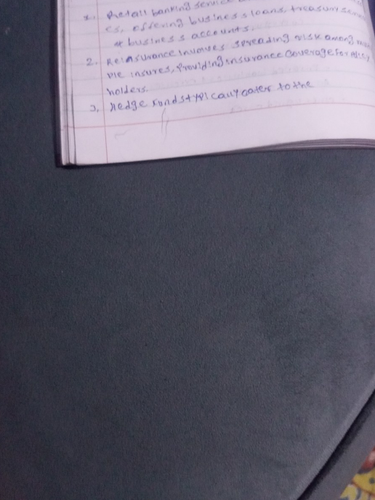 1. Retail banking service
es, offering business loans, treasury serv
& business accounts.
2. Reinsurance involves spreading risk among mul
ple insures, providing insurance coverage for policy
holders
3. Hedge Fonds typicaly caters to the